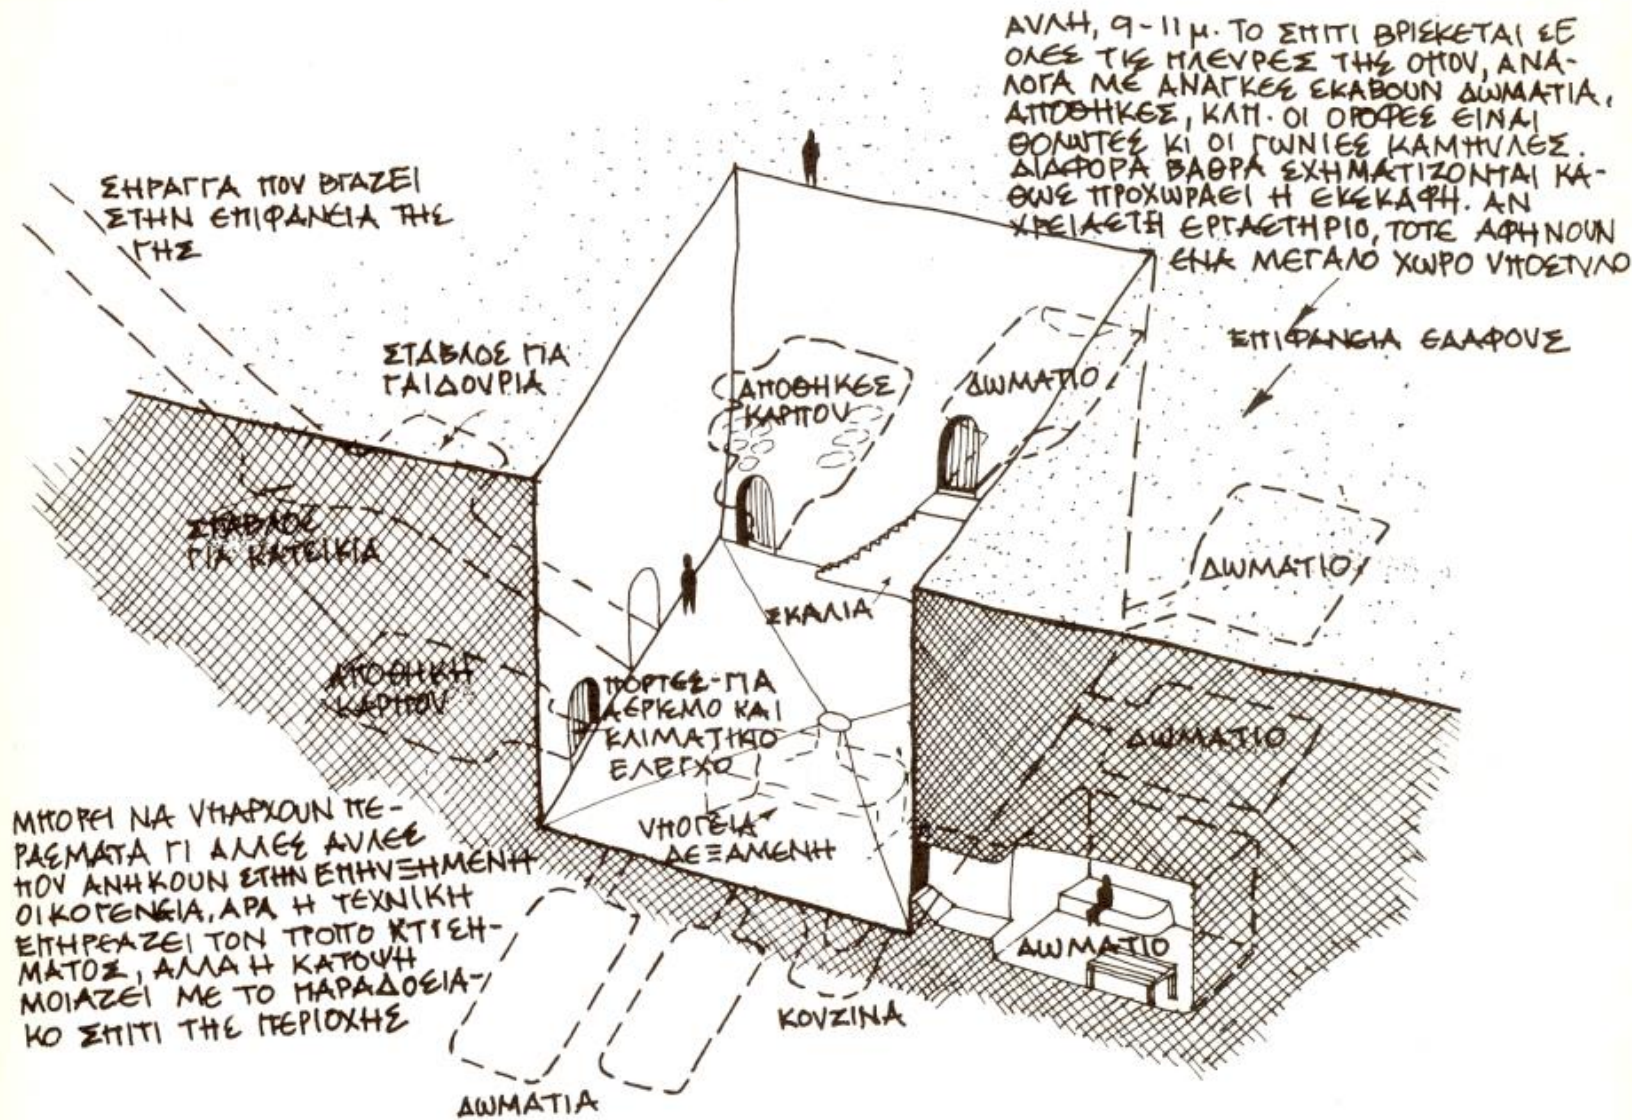 ΑΥΛΗ, 9-11 μ. ΤΟ ΣΠΙΤΙ ΒΡΙΣΚΕΤΑΙ ΣΕ
ΟΛΕΣ ΤΙΣ ΠΛΕΥΡΕΣ ΤΗΣ ΟΠΟΥ, ΑΝΑ-
ΛΟΓΑ ΜΕ ΑΝΑΓΚΕΣ ΣΚΑΒΟΥΝ ΔΩΜΑΤΙΑ,
ΑΠΟΘΗΚΕΣ, ΚΛΠ. ΟΙ ΟΡΟΦΕΣ ΕΙΝΑΙ
ΘΟΛΩΤΕΣ ΚΙ ΟΙ ΓΩΝΙΕΣ ΚΑΜΠΥΛΕΣ.
ΔΙΑΦΟΡΑ ΒΑΘΡΑ ΣΧΗΜΑΤΙΖΟΝΤΑΙ ΚΑ-
ΘΩΣ ΠΡΟΧΩΡΑΕΙ Η ΕΚΣΚΑΦΗ. ΑΝ
ΧΡΕΙΑΣΤΗ ΕΡΓΑΣΤΗΡΙΟ, ΤΟΤΕ ΑΦΗΝΟΥΝ
ΕΝΑ ΜΕΓΑΛΟ ΧΩΡΟ ΥΠΟΣΤΥΛΟ
ΣΗΡΑΓΓΑ ΠΟΥ ΒΓΑΖΕΙ
ΣΤΗΝ ΕΠΙΦΑΝΕΙΑ ΤΗΣ
ΓΗΣ
ΕΠΙΦΑΝΕΙΑ ΕΔΑΦΟΥΣ
ΣΤΑΒΛΟΣ ΓΙΑ
ΓΑΙΔΟΥΡΙΑ
ΑΠΟΘΗΚΕΣ
ΚΑΡΠΟΥ
ΔΩΜΑΤΙΟ
ΣΤΑΒΛΟΣ
ΓΙΑ ΚΑΤΣΙΚΙΑ
ΔΩΜΑΤΙΟ
ΣΚΑΛΙΑ
ΑΠΟΘΗΚΗ
ΚΑΡΠΟΥ
ΠΟΡΤΕΣ-ΓΙΑ
ΑΕΡΙΣΜΟ ΚΑΙ
ΚΛΙΜΑΤΙΚΟ
ΕΛΕΓΧΟ
ΔΩΜΑΤΙΟ
ΥΠΟΓΕΙΑ
ΔΕΞΑΜΕΝΗ
ΜΠΟΡΕΙ ΝΑ ΥΠΑΡΧΟΥΝ ΠΕ-
ΡΑΣΜΑΤΑ ΓΙ ΑΛΛΕΣ ΑΥΛΕΣ
ΠΟΥ ΑΝΗΚΟΥΝ ΣΤΗΝ ΕΠΗΥΞΗΜΕΝΗ
ΟΙΚΟΓΕΝΕΙΑ. ΑΡΑ Η ΤΕΧΝΙΚΗ
ΕΠΗΡΕΑΖΕΙ ΤΟΝ ΤΡΟΠΟ ΚΤΙΣΗ-
ΜΑΤΟΣ, ΑΛΛΑ Η ΚΑΤΟΨΗ
ΜΟΙΑΖΕΙ ΜΕ ΤΟ ΠΑΡΑΔΟΣΙΑ-
ΚΟ ΣΠΙΤΙ ΤΗΣ ΠΕΡΙΟΧΗΣ
ΔΩΜΑΤΙΟ
ΚΟΥΖΙΝΑ
ΔΩΜΑΤΙΑ